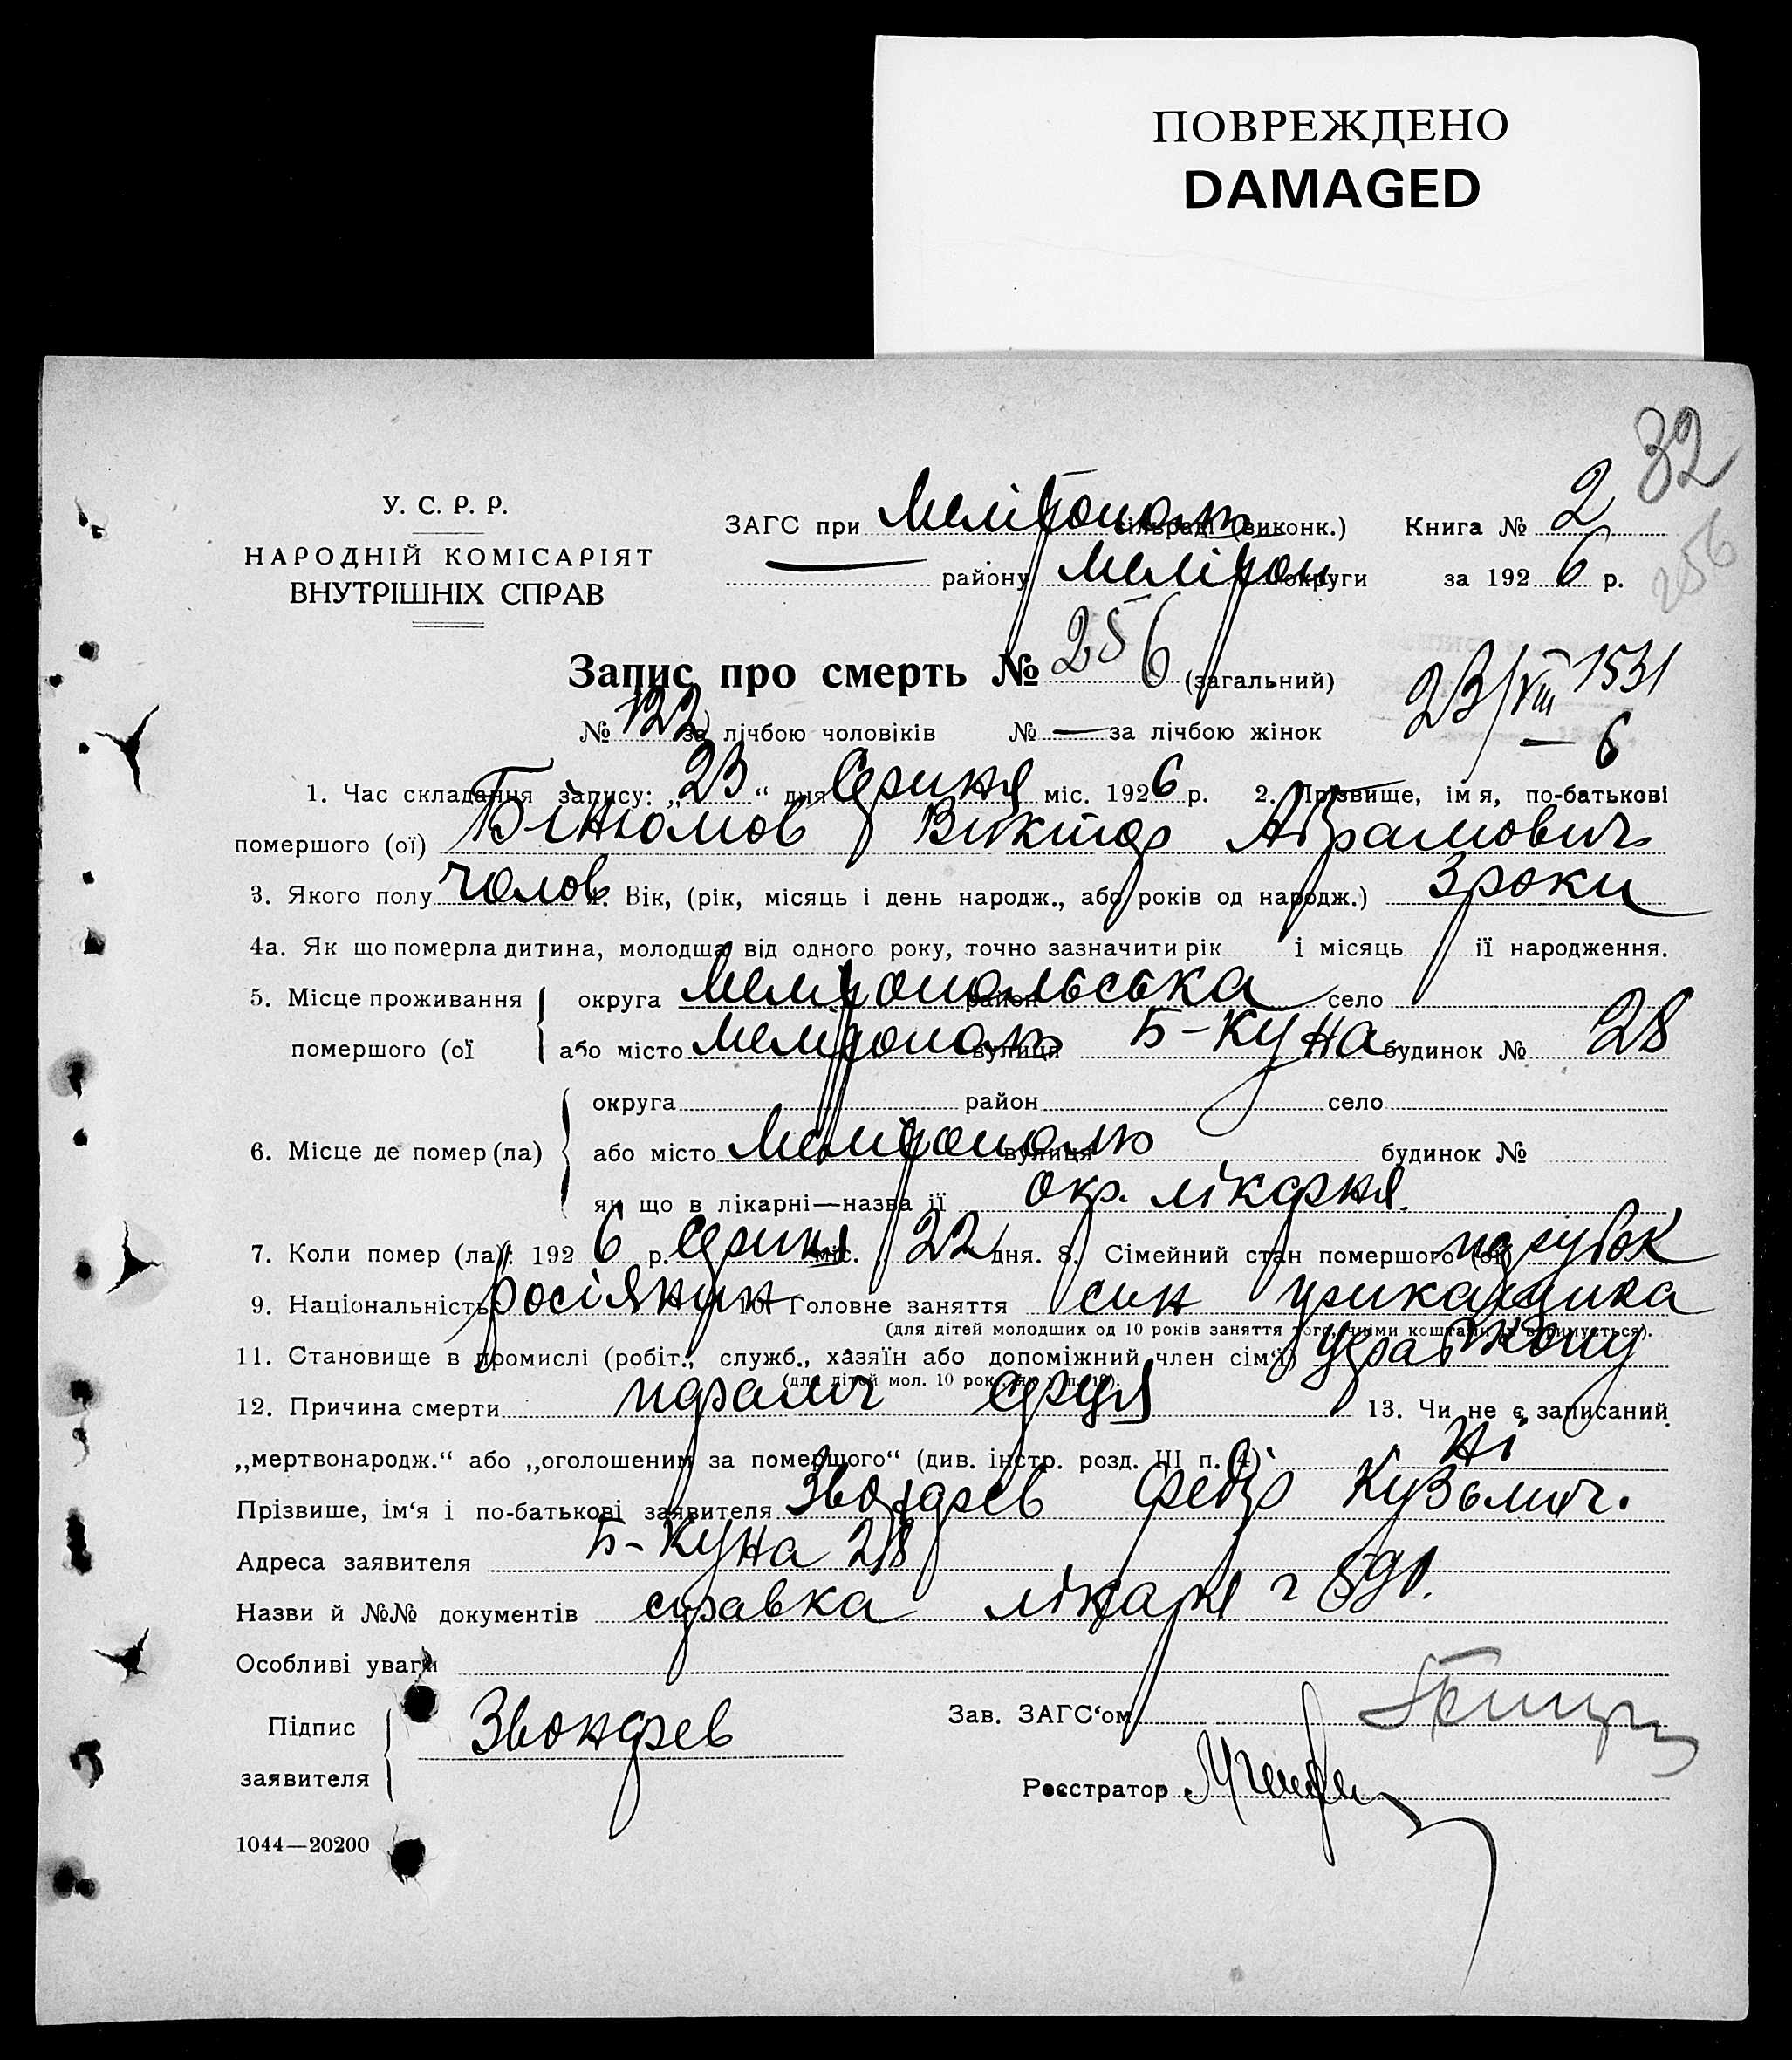 ПОВРЕЖДЕНО
DAMAGED
32
У. С. Р. Р.
НАРОДНІЙ КОМІСАРІЯТ
ВНУТРІШНІХ СПРАВ
ЗАГС при Мелітополь сільраді (виконк.) Книга № 2
256
— району Мелітоп округи за 1926 р.
Запис про смерть № 256 (загальний)
23/VIII 1531
— 6
№ 122 за лічбою чоловіків № — за лічбою жінок
1. Час складання запису: „23“ дня Серпня міс. 1926 р. 2. Прізвище, імя, по-батькові
помершого (ої) Бінюмов Виктор Абрамович
3. Якого полу чолов 4. Вік, (рік, місяць і день народж., або років од народж.) 3 роки
4а. Як що померла дитина, молодша від одного року, точно зазначити рік і місяць ії народження.
5. Місце проживання округа Мелітопольська район село
помершого (ої або місто Мелітополь вулиця Б-Куна будинок № 28
округа район село
6. Місце де помер (ла) або місто Мелітополь вулиця будинок №
як що в лікарні—назва ії окр. лікарня.
7. Коли помер (ла): 1926 р. серпня міс. 22 дня. 8. Сімейний стан помершого (ої) парубок
9. Національність росіянин 10. Головне заняття син
(для дітей молодших од 10 років заняття того, чиїми коштами утримується).
11. Становище в промислі (робіт., служб., хазяїн або допоміжний член сім‘ї)
(для дітей мол. 10 рок. як у п. 10).
12. Причина смерти параліч серця 13. Чи не є записаний
„мертвонародж.“ або „оголошеним за померщого“ (див. інстр. розд. III п. 4) Ні
Прізвише, ім‘я і по-батькові заявителя Федір Кузьмич.
Адреса заявителя Б-Куна 28
Назви й №№ документів справка лікаря
Особливі уваги
Підпис
заявителя Звондрев
Зав. ЗАГС‘ом
Реєстратор
1044—20200